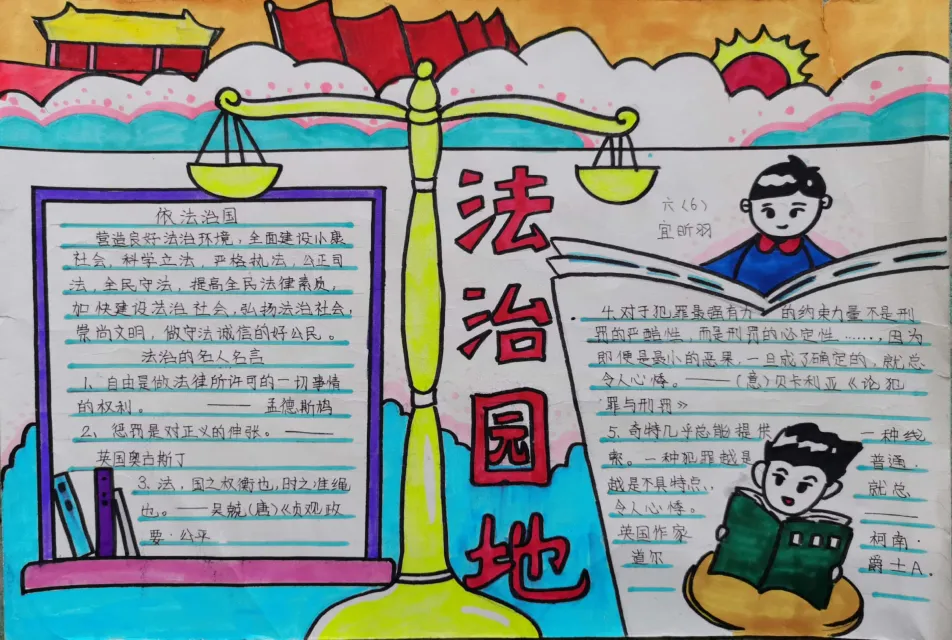 法治园地
六(6)
宜昕羽
依法治国
营造良好法治环境，全面建设小康
社会，科学立法，严格执法，公正司
法，全民守法，提高全民法律素质，
加快建设法治社会，弘扬法治社会，
崇尚文明，做守法诚信的好公民。
法治的名人名言
1、自由是做法律所许可的一切事情
的权利。 —— 孟德斯鸠
2、惩罚是对正义的伸张。 ——
英国奥古斯丁
3.法，国之权衡也，时之准绳
也。——吴兢(唐)《贞观政
要·公平
4.对于犯罪最强有力 的约束力量不是刑
罚的严酷性，而是刑罚的必定性……，因为
即便是最小的恶果，一旦成了确定的，就总
令人心悸。——(意)贝卡利亚《论犯
罪与刑罚》
5.奇特几乎总能提供 一种线
索。一种犯罪越是 普通，
越是不具特点， 就总
令人心悸。 ——
英国作家 柯南·
道尔 爵士A.